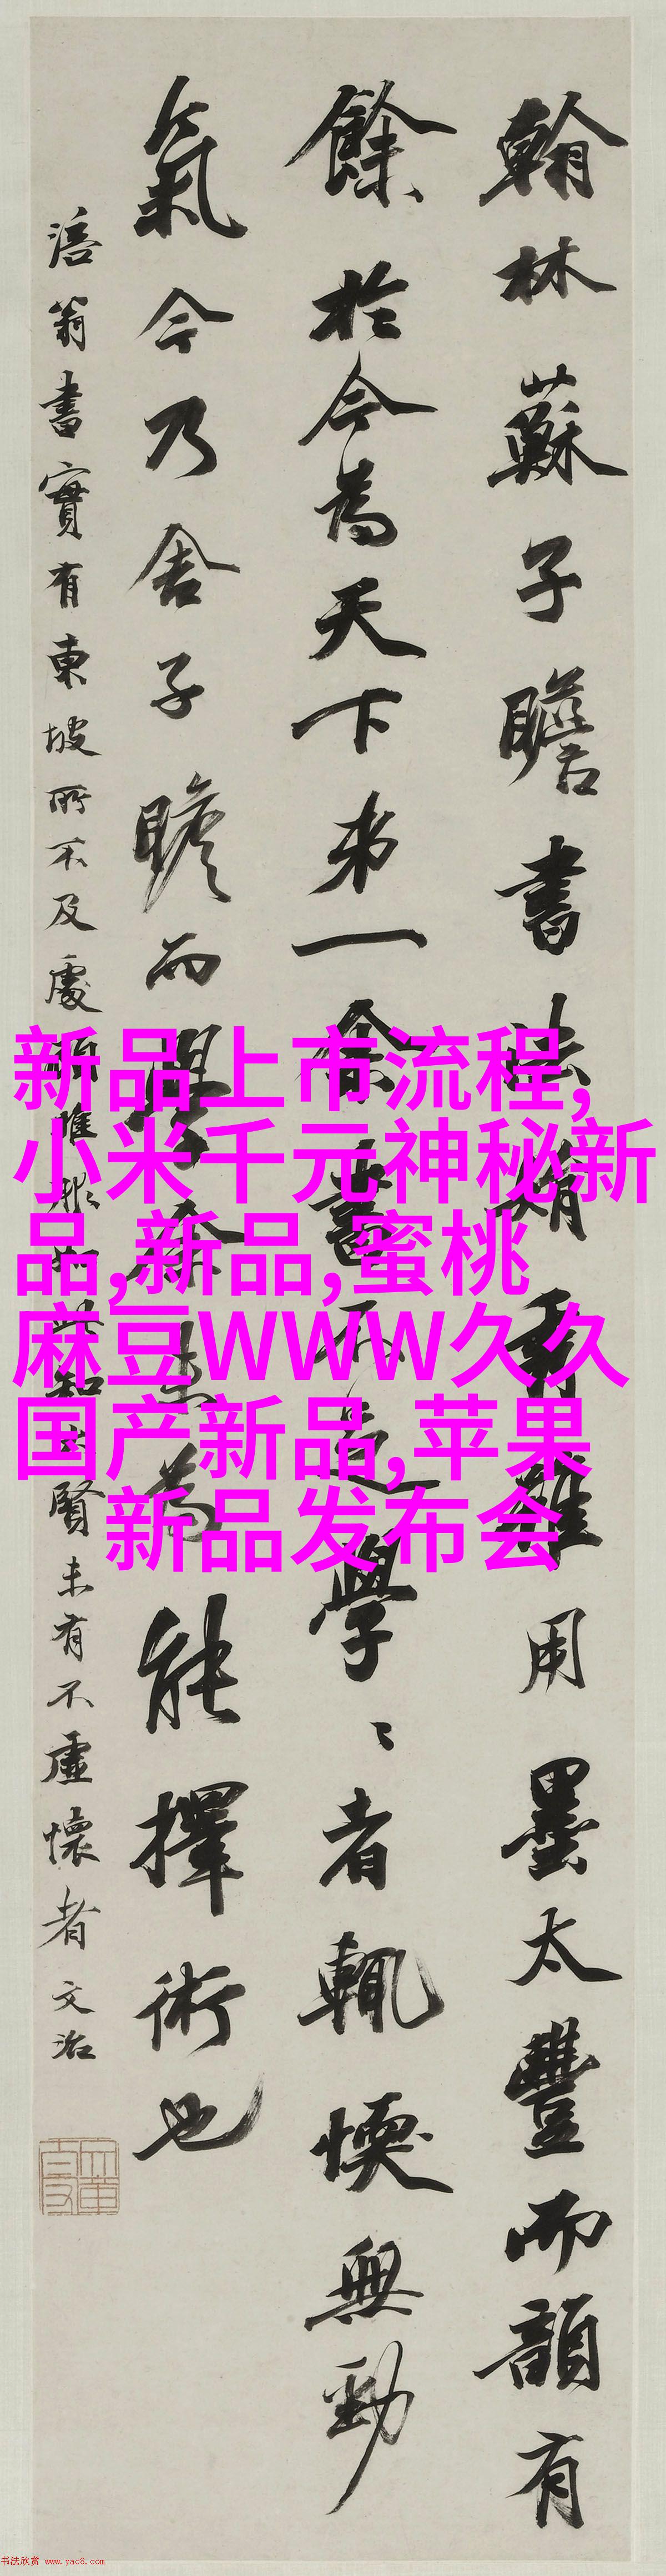 翰林蘇子瞻書法娟秀雖用墨太豐而韻有
餘於今為天下第一余書不足學學者輒愞無勁
氣今乃舍子瞻而學余未為能擇術也
涪翁書實有東坡所不及處
賢未有不虛懷者文治
新品上市流程,
小米千元神秘新
品,新品,蜜桃
麻豆WWW久久
国产新品,苹果
新品发布会
书法欣赏 www.yac8.com